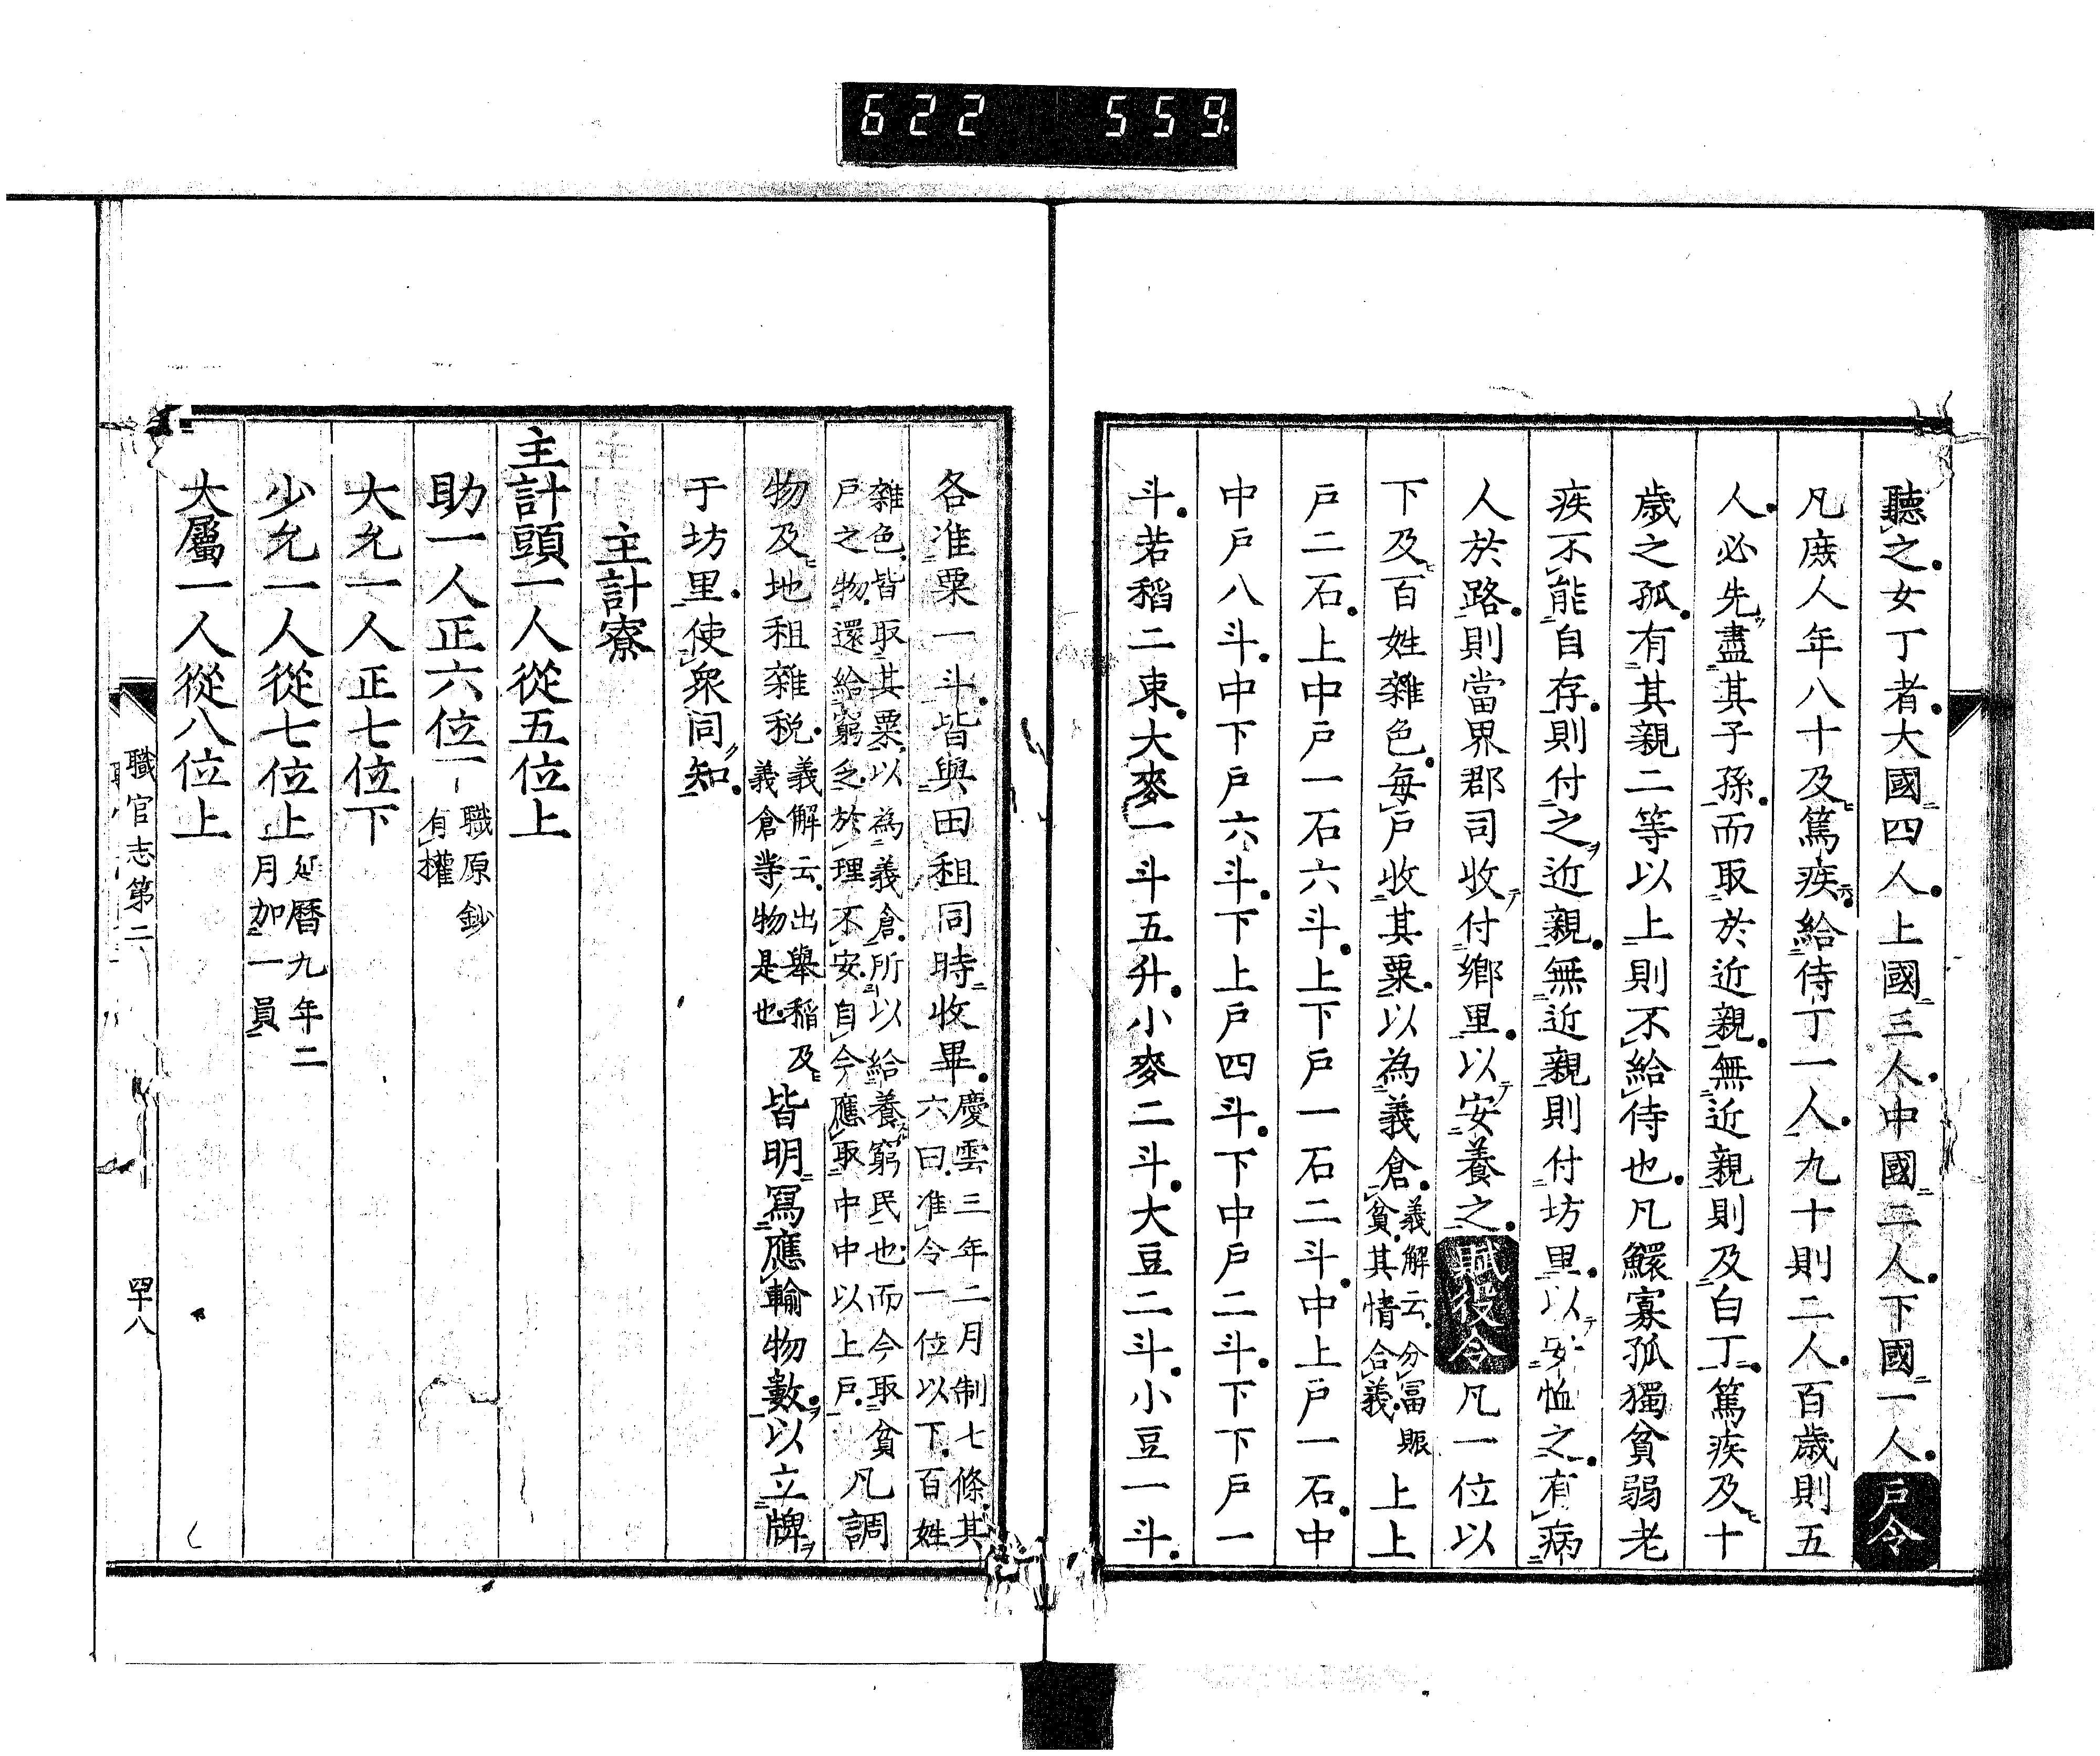 622 559
聽之女丁者大國四人上國三人中國二人下國一人戸令
凡庶人年八十及篤疾給侍丁一人九十則二人百歲則五
人必先盡其子孫而取於近親無近親則及白丁篤疾及十
歲之孤有其親二等以上則不給侍也凡鰥寡孤獨貧弱老
疾不能自存則付之近親無近親則付坊里以安恤之有病
人於路則當界郡司收付鄉里以安養之賦役令凡一位以
下及百姓雜色每戸收其粟以為義倉義解云分富賑貧其情合義上上
戸二石上中戸一石六斗上下戸一石二斗中上戸一石中
中戸八斗中下戸六斗下上戸四斗下中戸二斗下下戸一
斗若稻二束大麥一斗五升小麥二斗大豆二斗小豆一斗
各准粟一斗皆與田租同時收畢慶雲三年二月制七條其六曰准令一位以下百姓
雜色皆取其粟以為義倉所以給養窮民也而今取貧戸之物還給窮乏於理不安自今應取中中以上戸凡調
物及地租雜税義解云出舉稻及義倉等物是也皆明寫應輸物數以立牌
于坊里使衆同知
主計寮
主計頭一人從五位上
助一人正六位一職原鈔有權
大允一人正七位下
少允一人從七位上延曆九年二月加一員
大屬一人從八位上
職官志第二
罕八